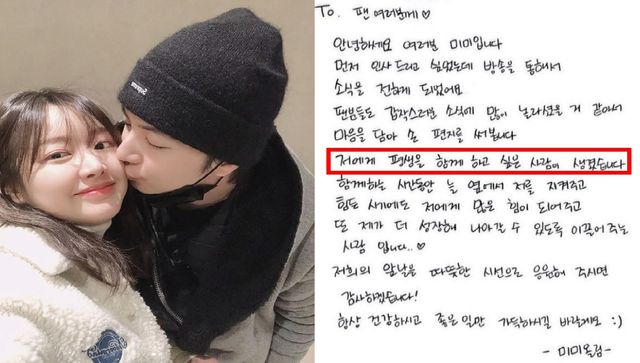 To. 팬 여러분께♡
안녕하세요 여러분 미미입니다
먼저 인사드리고 싶었는데 방송을 통해서
소식을 전하게 되었어요
팬분들도 갑작스러운 소식에 많이 놀라셨을 거 같아서
마음을 담아 손 편지를 써봅니다
저에게 평생을 함께 하고 싶은 사람이 생겼습니다
함께하는 시간동안 늘 옆에서 저를 지켜주고
힘든 시기에도 저에게 많은 힘이 되어주고
또 제가 더 성장해 나아갈 수 있도록 이끌어 주는
사람 입니다..♡
저희의 앞날을 따뜻한 시선으로 응원해 주시면
감사하겠습니다!
항상 건강하시고 좋은 일만 가득하시길 바랄게요 :)
- 미미올림-